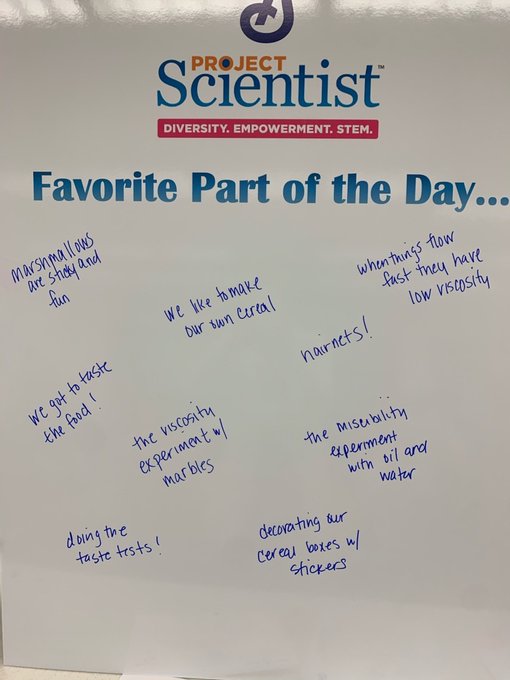 PROJECT
Scientist™
DIVERSITY. EMPOWERMENT. STEM.
Favorite Part of the Day...
marshmallows
are sticky and
fun
we like to make
our own cereal
when things flow
fast they have
low viscosity
hairnets!
we got to taste
the food!
the viscosity
experiment w/
marbles
the miscibility
experiment
with oil and
water
doing the
taste tests!
decorating our
cereal boxes w/
stickers